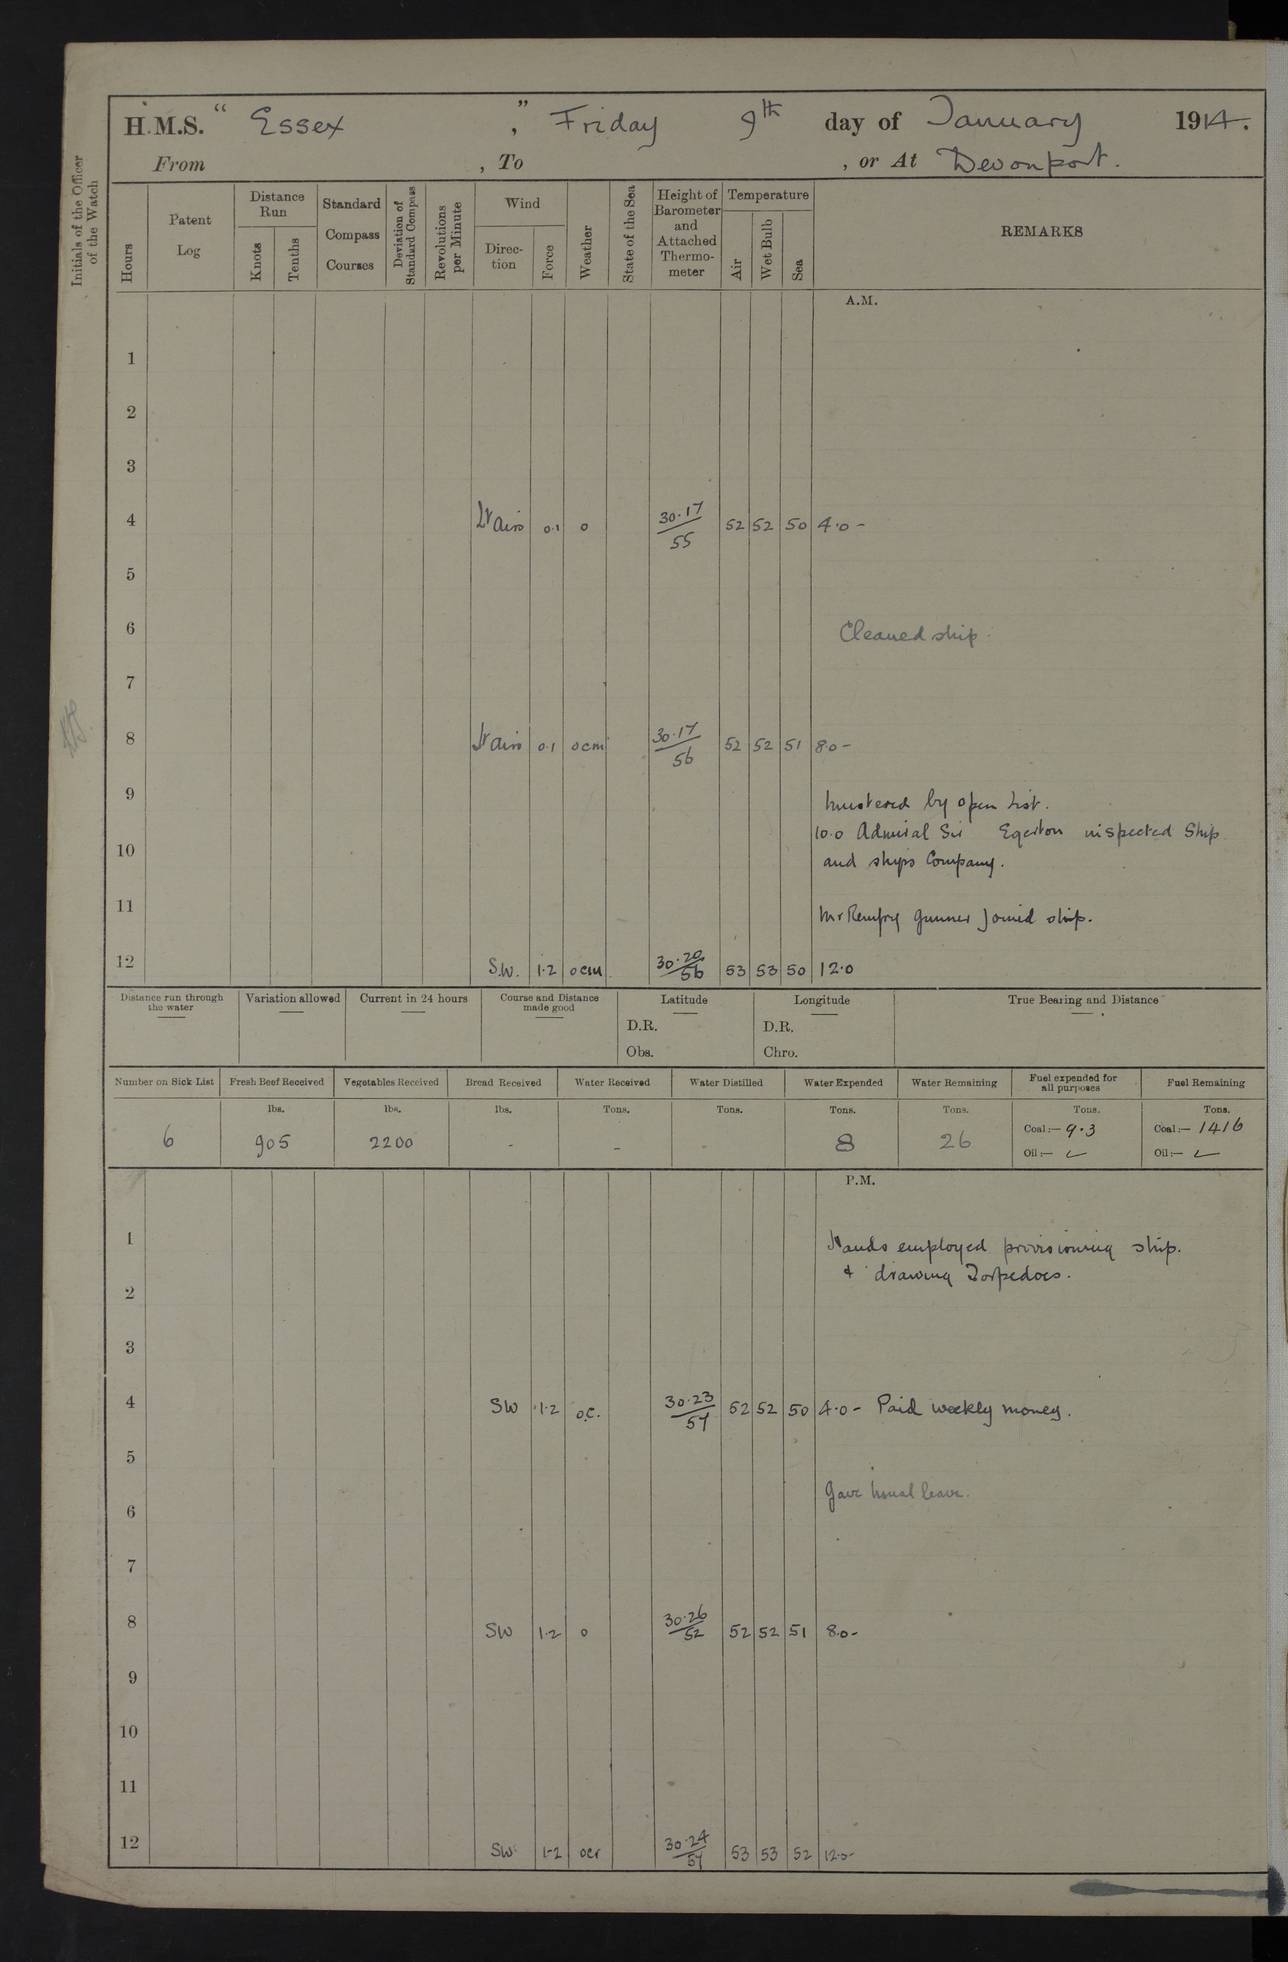 H.M.S. " Essex ", Friday 9th day of January 1914.
From , To , or At Devonport.
Initials of the Officer of the Watch
Hours
Patent Log
Distance Run
Knots
Tenths
Standard Compass Courses
Deviation of Standard Compass
Revolutions per Minute
Wind
Direction
Force
Weather
State of the Sea
Height of Barometer and Attached Thermometer
Temperature
Air
Wet Bulb
Sea
REMARKS
A.M.
1
2
3
4 Lt airs 0.1 o 30.17/55 52 52 50 4.0 -
5
6 Cleaned ship.
7
8 Lt airs 0.1 ocm 30.17/56 52 52 51 8.0 -
9 Mustered by open List.
10.0 Admiral Sir Egerton inspected Ship
10 and ships Company.
11 Mr Renfry Gunner joined ship.
12 S.W. 1.2 ocm 30.20/56 53 53 50 12.0
Distance run through the water
Variation allowed
Current in 24 hours
Course and Distance made good
Latitude
D.R.
Obs.
Longitude
D.R.
Chro.
True Bearing and Distance
Number on Sick List Fresh Beef Received Vegetables Received Bread Received Water Received Water Distilled Water Expended Water Remaining Fuel expended for all purposes Fuel Remaining
lbs. lbs. lbs. Tons. Tons. Tons. Tons. Tons. Tons.
6 905 2200 - - - 8 26 Coal:— 9.3 Coal:— 1416
Oil:— Oil:—
P.M.
1 Hands employed provisioning ship.
& drawing Torpedoes.
2
3
4 SW 1.2 o.c. 30.23/57 52 52 50 4.0 - Paid weekly money.
5
Gave Usual leave.
6
7
8 SW 1.2 o 30.26/52 52 52 51 8.0 -
9
10
11
12 SW 1-2 ocr 30.24/57 53 53 52 12.0 -